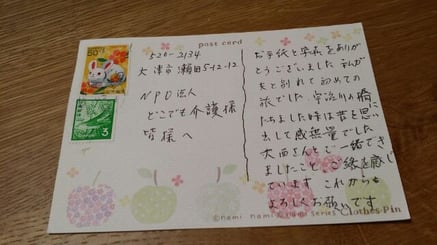 post card
50
3
520-2134
大津市瀬田5-12-12
NPO法人
どこでも介護様
皆様へ
お手紙と写真をありが
とうございました 私が
夫と別れて初めての
旅でした 宇治川の橋
にたちました時は昔を思い
出して感無量でした
大西さんとご一緒でき
ましたこと ご縁を感じ
ています これからも
よろしくお願いです
©nami nami nami series Clothes-Pin